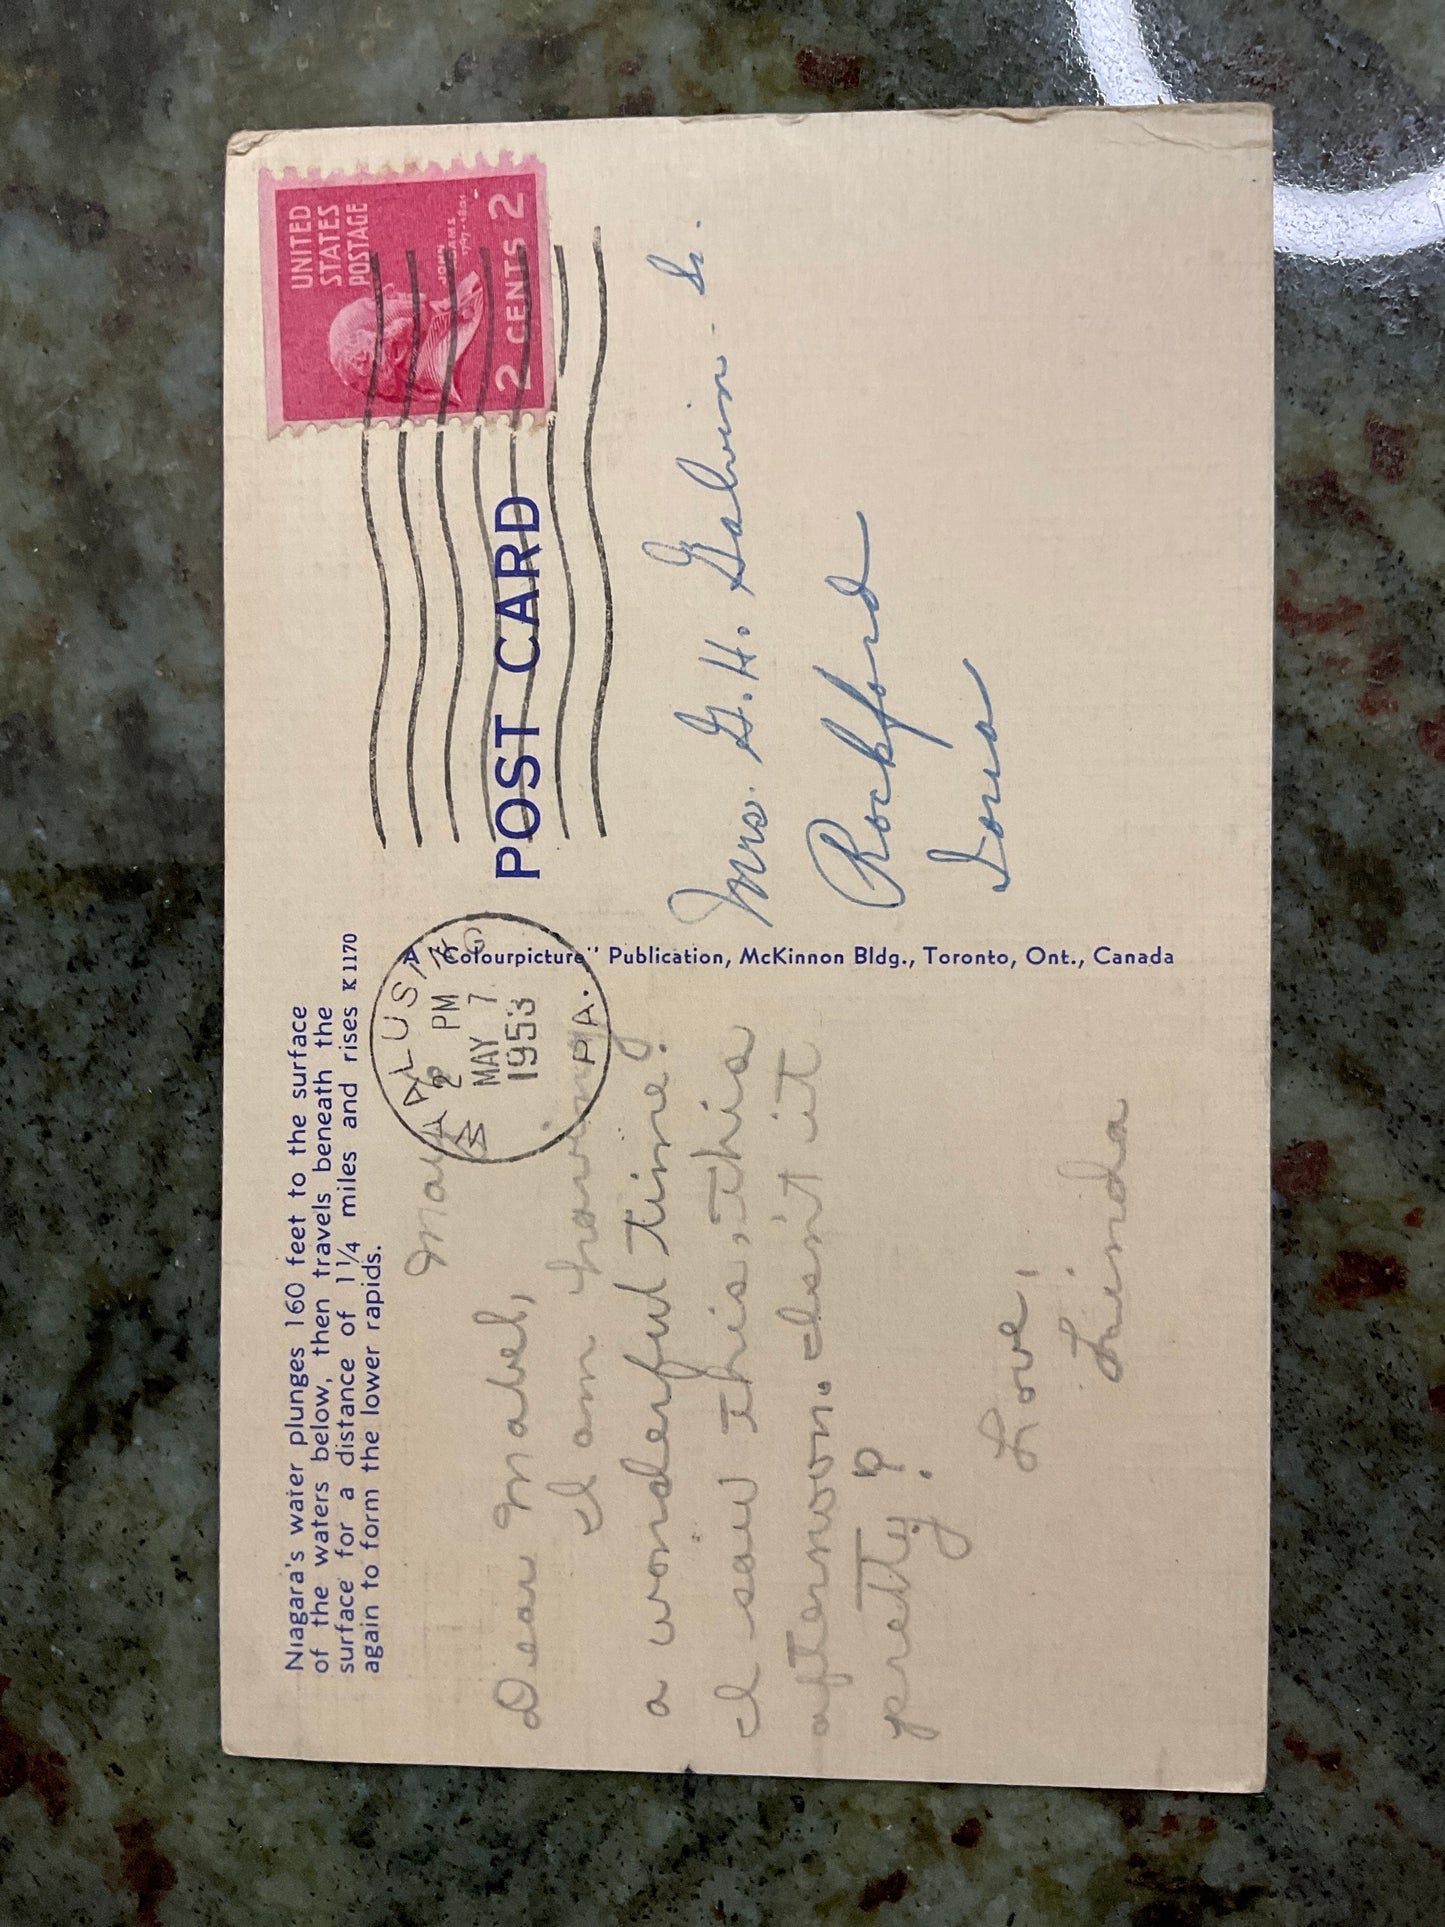 Niagara's water plunges 160 feet to the surface
of the waters below, then travels beneath the
surface for a distance of 1¼ miles and rises
again to form the lower rapids.
K1170
May
Dear Mabel,
I am having
a wonderful time.
I saw this, this
afternoon. Isn't it
pretty?
Love,
Linda
A "Colourpicture" Publication, McKinnon Bldg., Toronto, Ont., Canada
WAPLUSING
2 PM
MAY 7
1953
PA.
UNITED
STATES
POSTAGE
JOHN
ADAMS
1797-1801
2 CENTS 2
POST CARD
Mrs. G. H. Galvin Sr.
Rockford
Iowa